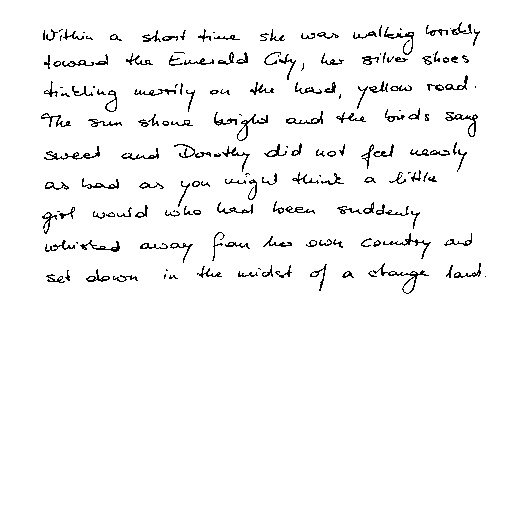 Within a short time she was walking briskly
toward the Emerald City, her silver shoes
tinkling merrily on the hard, yellow road.
The sun shone bright and the birds sang
sweet and Dorothy did not feel nearly
as bad as you might think a little
girl would who had been suddenly
whisked away from her own country and
set down in the midst of a strange land.